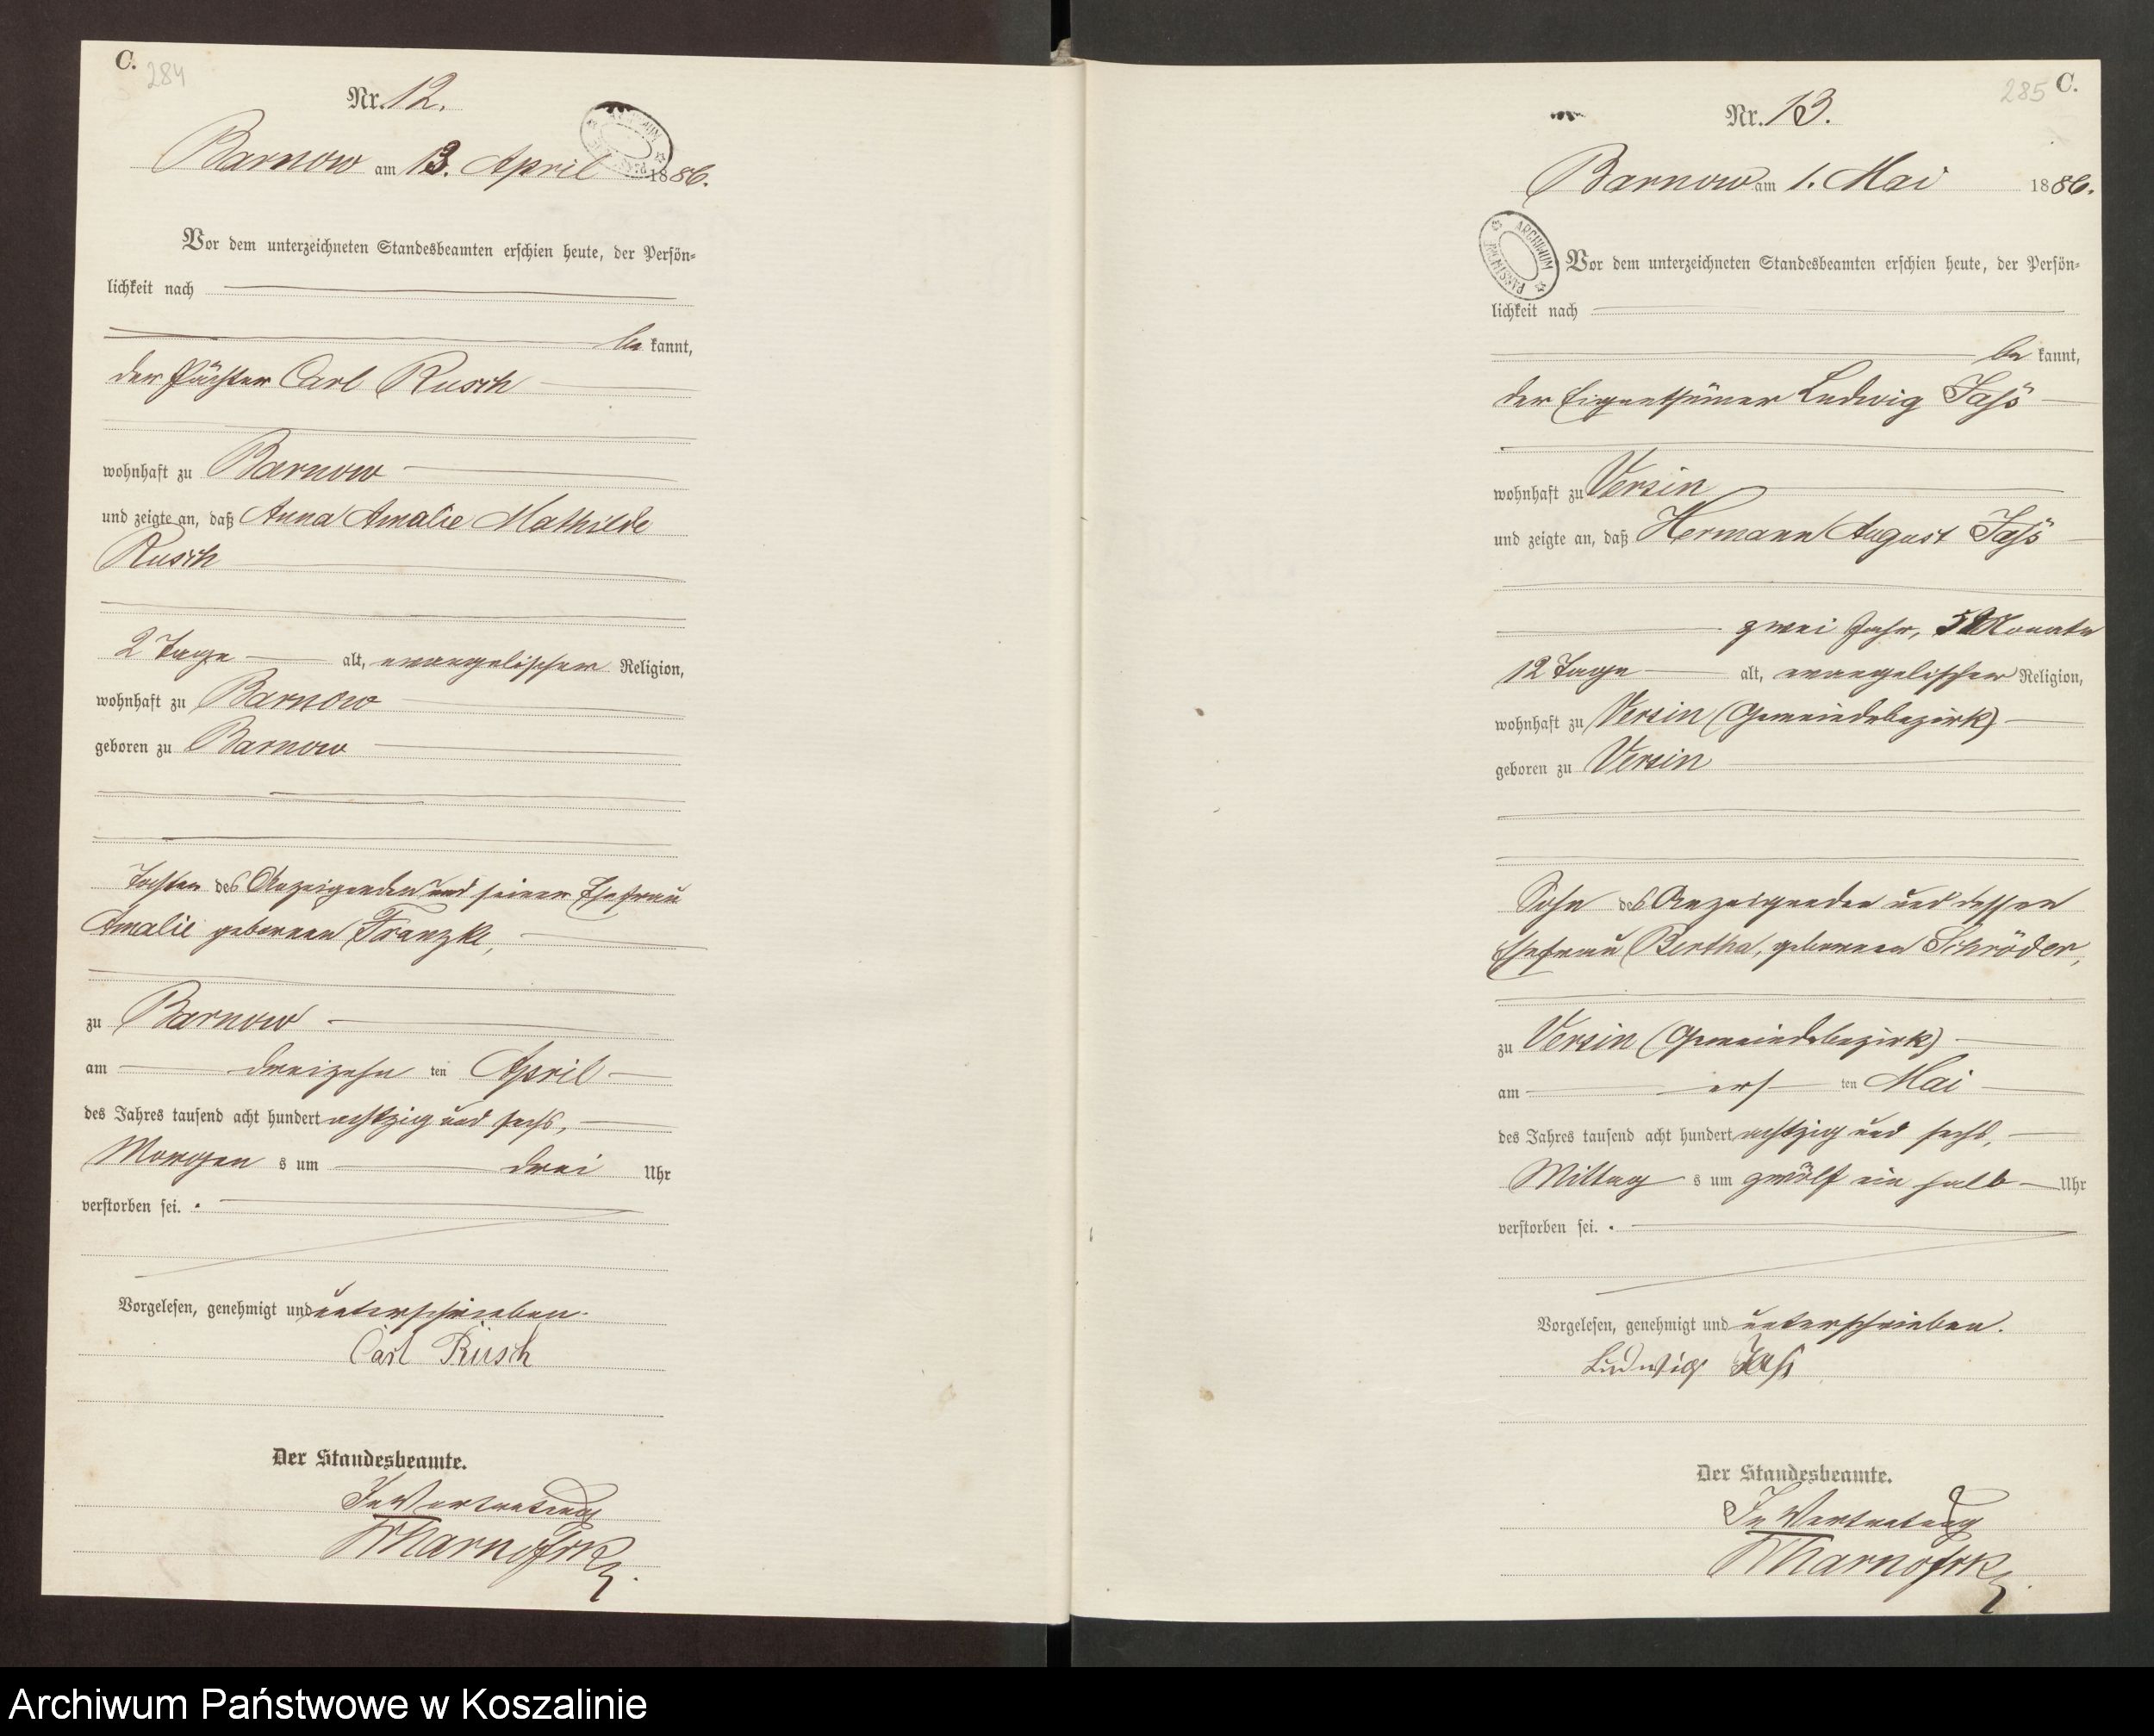 C.
284
Nr. 12.
Barnow am 13. April 1886.
Vor dem unterzeichneten Standesbeamten erschien heute, der Persön-
lichkeit nach
be kannt,
der Pächter Carl Rusch
wohnhaft zu Barnow
und zeigte an, daß Anna Amalie Mathilde
Rusch
2 Tage alt, evangelischer Religion,
wohnhaft zu Barnow
geboren zu Barnow
Tochter des Anzeigenden und seiner Ehefrau
Amalie geborenen Franzke,
zu Barnow
am dreizehn ten April
des Jahres tausend acht hundert achtzig und sechs,
Morgen s um drei Uhr
verstorben sei.
Vorgelesen, genehmigt und unterschrieben.
Carl Rusch
Der Standesbeamte.
In Vertretung
285
C.
Nr. 13.
Barnow am 1. Mai 1886.
ARCHIWUM
Vor dem unterzeichneten Standesbeamten erschien heute, der Persön-
lichkeit nach
be kannt,
der Eigenthümer Ludwig
wohnhaft zu Versin
und zeigte an, daß Hermann August
zwei Jahr, Monate
12 Tage alt, evangelischer Religion,
wohnhaft zu Versin (Gemeindebezirk)
geboren zu Versin
Sohn des Anzeigenden und dessen
Ehefrau Bertha, geborenen Schröder,
zu Versin (Gemeindebezirk)
am ers ten Mai
des Jahres tausend acht hundert achtzig und sechs,
Mittag s um zwölf ein halb Uhr
verstorben sei.
Vorgelesen, genehmigt und unterschrieben.
Ludwig
Der Standesbeamte.
In Vertretung
Archiwum Państwowe w Koszalinie